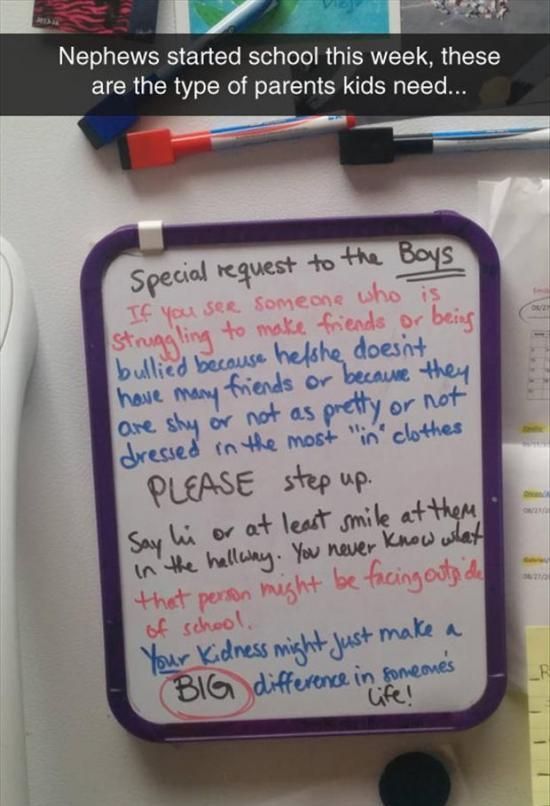 Nephews started school this week, these
are the type of parents kids need...
Special request to the Boys
If you see someone who is
struggling to make friends or being
bullied because he/she doesn't
have many friends or because they
are shy or not as pretty or not
dressed in the most "in" clothes
PLEASE step up.
Say hi or at least smile at them
in the hallway. You never know what
that person might be facing outside
of school.
Your kidness might just make a
BIG difference in someone's
life!